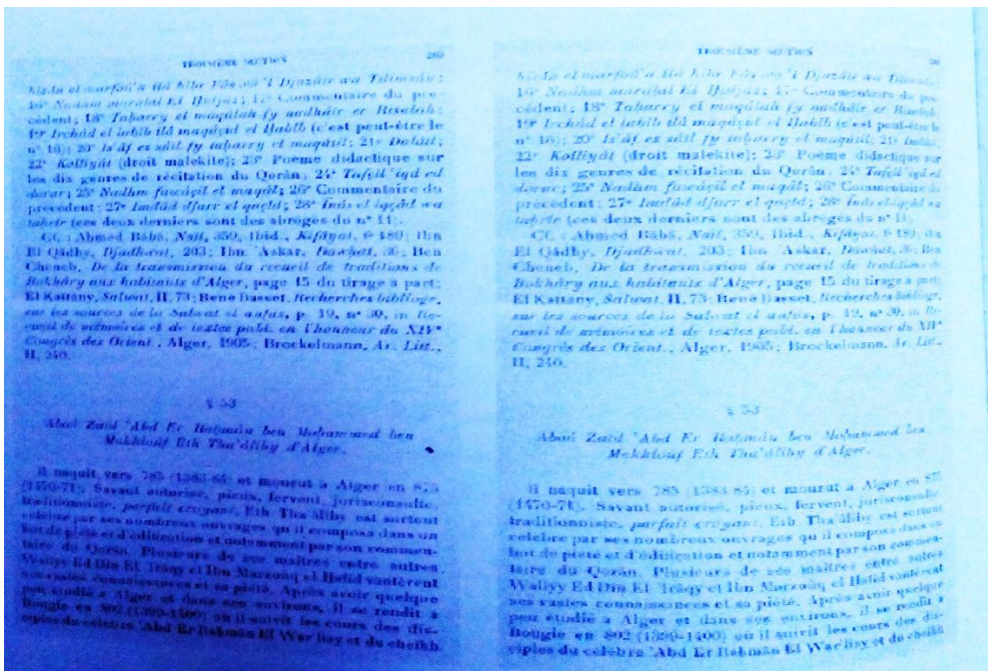 TROISIÈME SECTION 269
el marfoû'a ilâ Fâs wa 'l Djazâir wa Tilimsân;
16° Nadhm marâkai El Ḥadjâz; 17° Commentaire du pré-
cédent; 18° Taḥarry el maqâlah fy nadhâir er Risalah;
19° Irchâd el labîb ilâ maqâçid el Ḥabîb (c'est peut-être le
n° 16); 20° Is'âf es sâïl fy taḥarry el maqâtil; 21° Dalâïl;
22° Kolliyât (droit malekite); 23° Poème didactique sur
les dix genres de récitation du Qorân; 24° Tafçîl 'iqd ed
dorar; 25° Nadhm fawâçil el maqâl; 26° Commentaire du
précédent; 27° Imdâd djarr el qaçîd; 28°
taḥrîr (ces deux derniers sont des abrégés du n° 11).
Cf. : Aḥmed Bâbâ, Naïl, 359, Ibid., Kifâyat, f° 189; Ibn
El Qâḍhy, Djadhwat, 203; Ibn 'Askar, Dawḥat, 36; Ben
Cheneb, De la transmission du recueil de traditions de
Bokhâry aux habitants d'Alger, page 15 du tirage à part;
El Kattâny, Salwat, II, 73; René Basset, Recherches bibliogr.
sur les sources de la Salwat el anfas, p. 19, n° 30, in Re-
cueil de mémoires et de textes publ. en l'honneur du XIVe
Congrès des Orient., Alger, 1905; Brockelmann, Ar. Litt.,
II, 240.
§ 53
Aboû Zaïd 'Abd Er Raḥmân ben Moḥammed ben
Makhloûf Eth Tha'âliby d'Alger.
Il naquit vers 785 (1383-84) et mourut à Alger en 875
(1470-71). Savant autorisé, pieux, fervent, jurisconsulte,
traditionniste, parfait croyant, Eth Tha'âliby est surtout
célèbre par ses nombreux ouvrages qu'il composa dans un
but de piété et d'édification et notamment par son commen-
taire du Qorân. Plusieurs de ses maîtres entre autres
Waliyy Ed Dîn El 'Irâqy et Ibn Marzoûq el Ḥafîd vantèrent
ses vastes connaissances et sa piété. Après avoir quelque
peu étudié à Alger et dans ses environs, il se rendit à
Bougie en 802 (1399-1400) où il suivit les cours des dis-
ciples du célèbre 'Abd Er Raḥmân El War'lisy et du cheikh
TROISIÈME SECTION
el marfoû'a ilâ Fâs wa 'l Djazâir wa
16° Nadhm marâkai El Ḥadjâz; 17° Commentaire du pré-
cédent; 18° Taḥarry el maqâlah fy nadhâir er Risalah;
19° Irchâd el labîb ilâ maqâçid el Ḥabîb (c'est peut-être le
n° 16); 20° Is'âf es sâïl fy taḥarry el maqâtil; 21° Dalâïl;
22° Kolliyât (droit malekite); 23° Poème didactique sur
les dix genres de récitation du Qorân; 24° Tafçîl 'iqd ed
dorar; 25° Nadhm fawâçil el maqâl; 26° Commentaire du
précédent; 27° Imdâd djarr el qaçîd; 28°
taḥrîr (ces deux derniers sont des abrégés du n° 11).
Cf. : Aḥmed Bâbâ, Naïl, 359, Ibid., Kifâyat, f° 189; Ibn
El Qâḍhy, Djadhwat, 203; Ibn 'Askar, Dawḥat, 36; Ben
Cheneb, De la transmission du recueil de traditions de
Bokhâry aux habitants d'Alger, page 15 du tirage à part;
El Kattâny, Salwat, II, 73; René Basset, Recherches bibliogr.
sur les sources de la Salwat el anfas, p. 19, n° 30, in Re-
cueil de mémoires et de textes publ. en l'honneur du XIVe
Congrès des Orient., Alger, 1905; Brockelmann, Ar. Litt.,
II, 240.
§ 53
Aboû Zaïd 'Abd Er Raḥmân ben Moḥammed ben
Makhloûf Eth Tha'âliby d'Alger.
Il naquit vers 785 (1383-84) et mourut à Alger en 875
(1470-71). Savant autorisé, pieux, fervent, jurisconsulte,
traditionniste, parfait croyant, Eth Tha'âliby est surtout
célèbre par ses nombreux ouvrages qu'il composa dans un
but de piété et d'édification et notamment par son commen-
taire du Qorân. Plusieurs de ses maîtres entre autres
Waliyy Ed Dîn El 'Irâqy et Ibn Marzoûq el Ḥafîd vantèrent
ses vastes connaissances et sa piété. Après avoir quelque
peu étudié à Alger et dans ses environs, il se rendit à
Bougie en 802 (1399-1400) où il suivit les cours des dis-
ciples du célèbre 'Abd Er Raḥmân El War'lisy et du cheikh